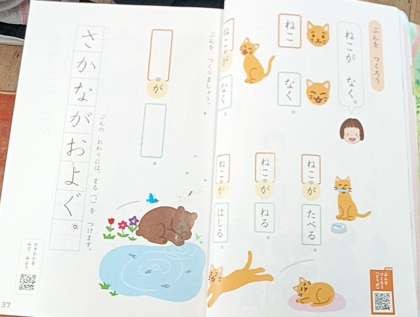 ぶんを つくろう
ねこが なく。
ねこ
なく。
ねこ
が
たべる。
ねこ
が
ねる。
ねこ
が
はしる。
ねこ
が
なく。
ぶんを つくりましょう。
が
。
ぶんの おわりには、まる 。を つけます。
さかながおよぐ。
37